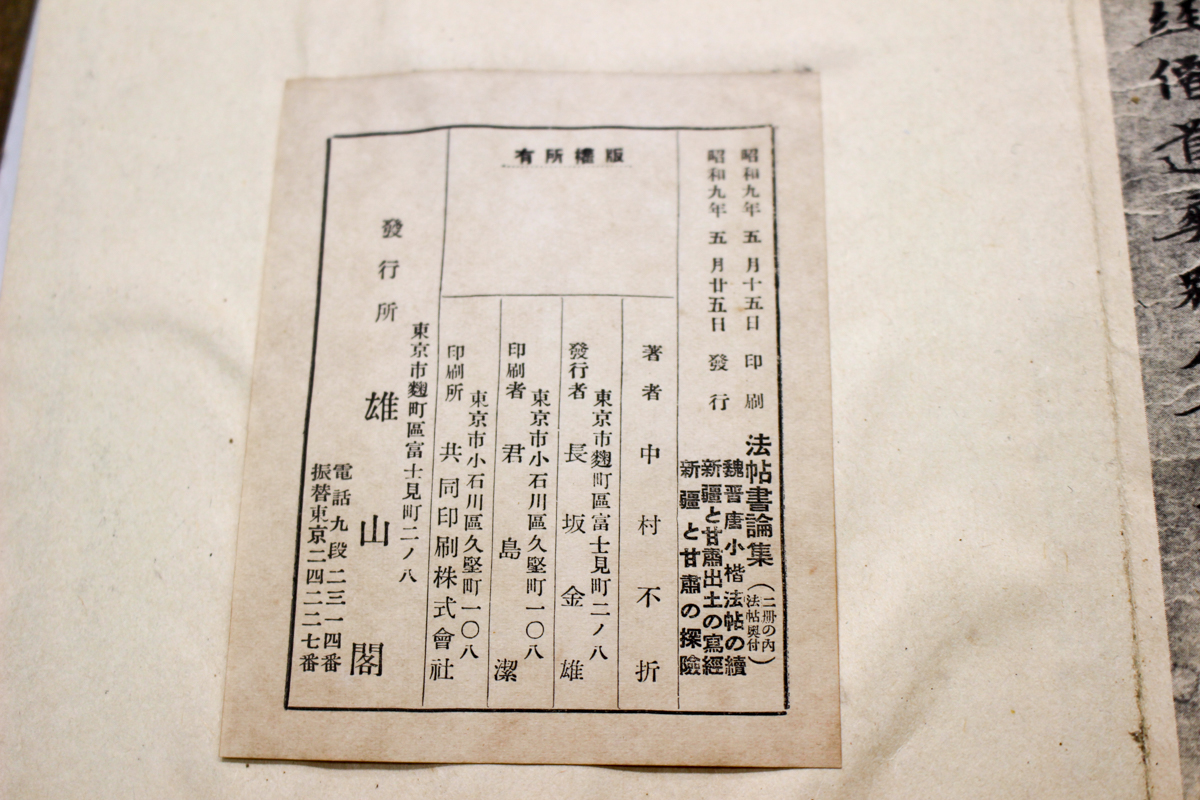 昭和九年五月十五日印刷
昭和九年五月廿五日發行
法帖書論集
(二册の內
法帖奧付)
魏晋唐小楷法帖の續
新疆と甘肅出土の寫經
新疆と甘肅の探險
版權所有
著者中村不折
東京市麴町區富士見町二ノ八
發行者長坂金雄
東京市小石川區久堅町一〇八
印刷者君島潔
東京市小石川區久堅町一〇八
印刷所共同印刷株式會社
東京市麴町區富士見町二ノ八
發行所雄山閣
電話九段二三一四番
振替東京二四二二七番